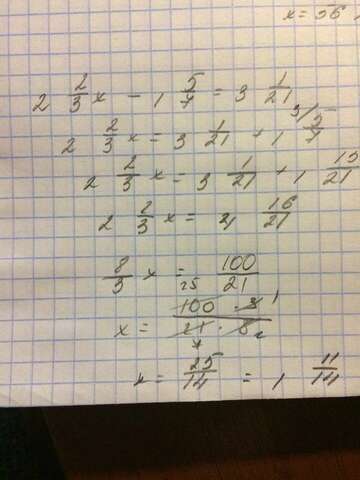 x = 56
2 2/3 x - 1 5/7 = 3 1/21
2 2/3 x = 3 1/21 + 1 5/7 3/
2 2/3 x = 3 1/21 + 1 15/21
2 2/3 x = 4 16/21
8/3 x = 100/21
x = 100 25 · 3 1 / 21 7 · 8 2
x = 25/14 = 1 11/14